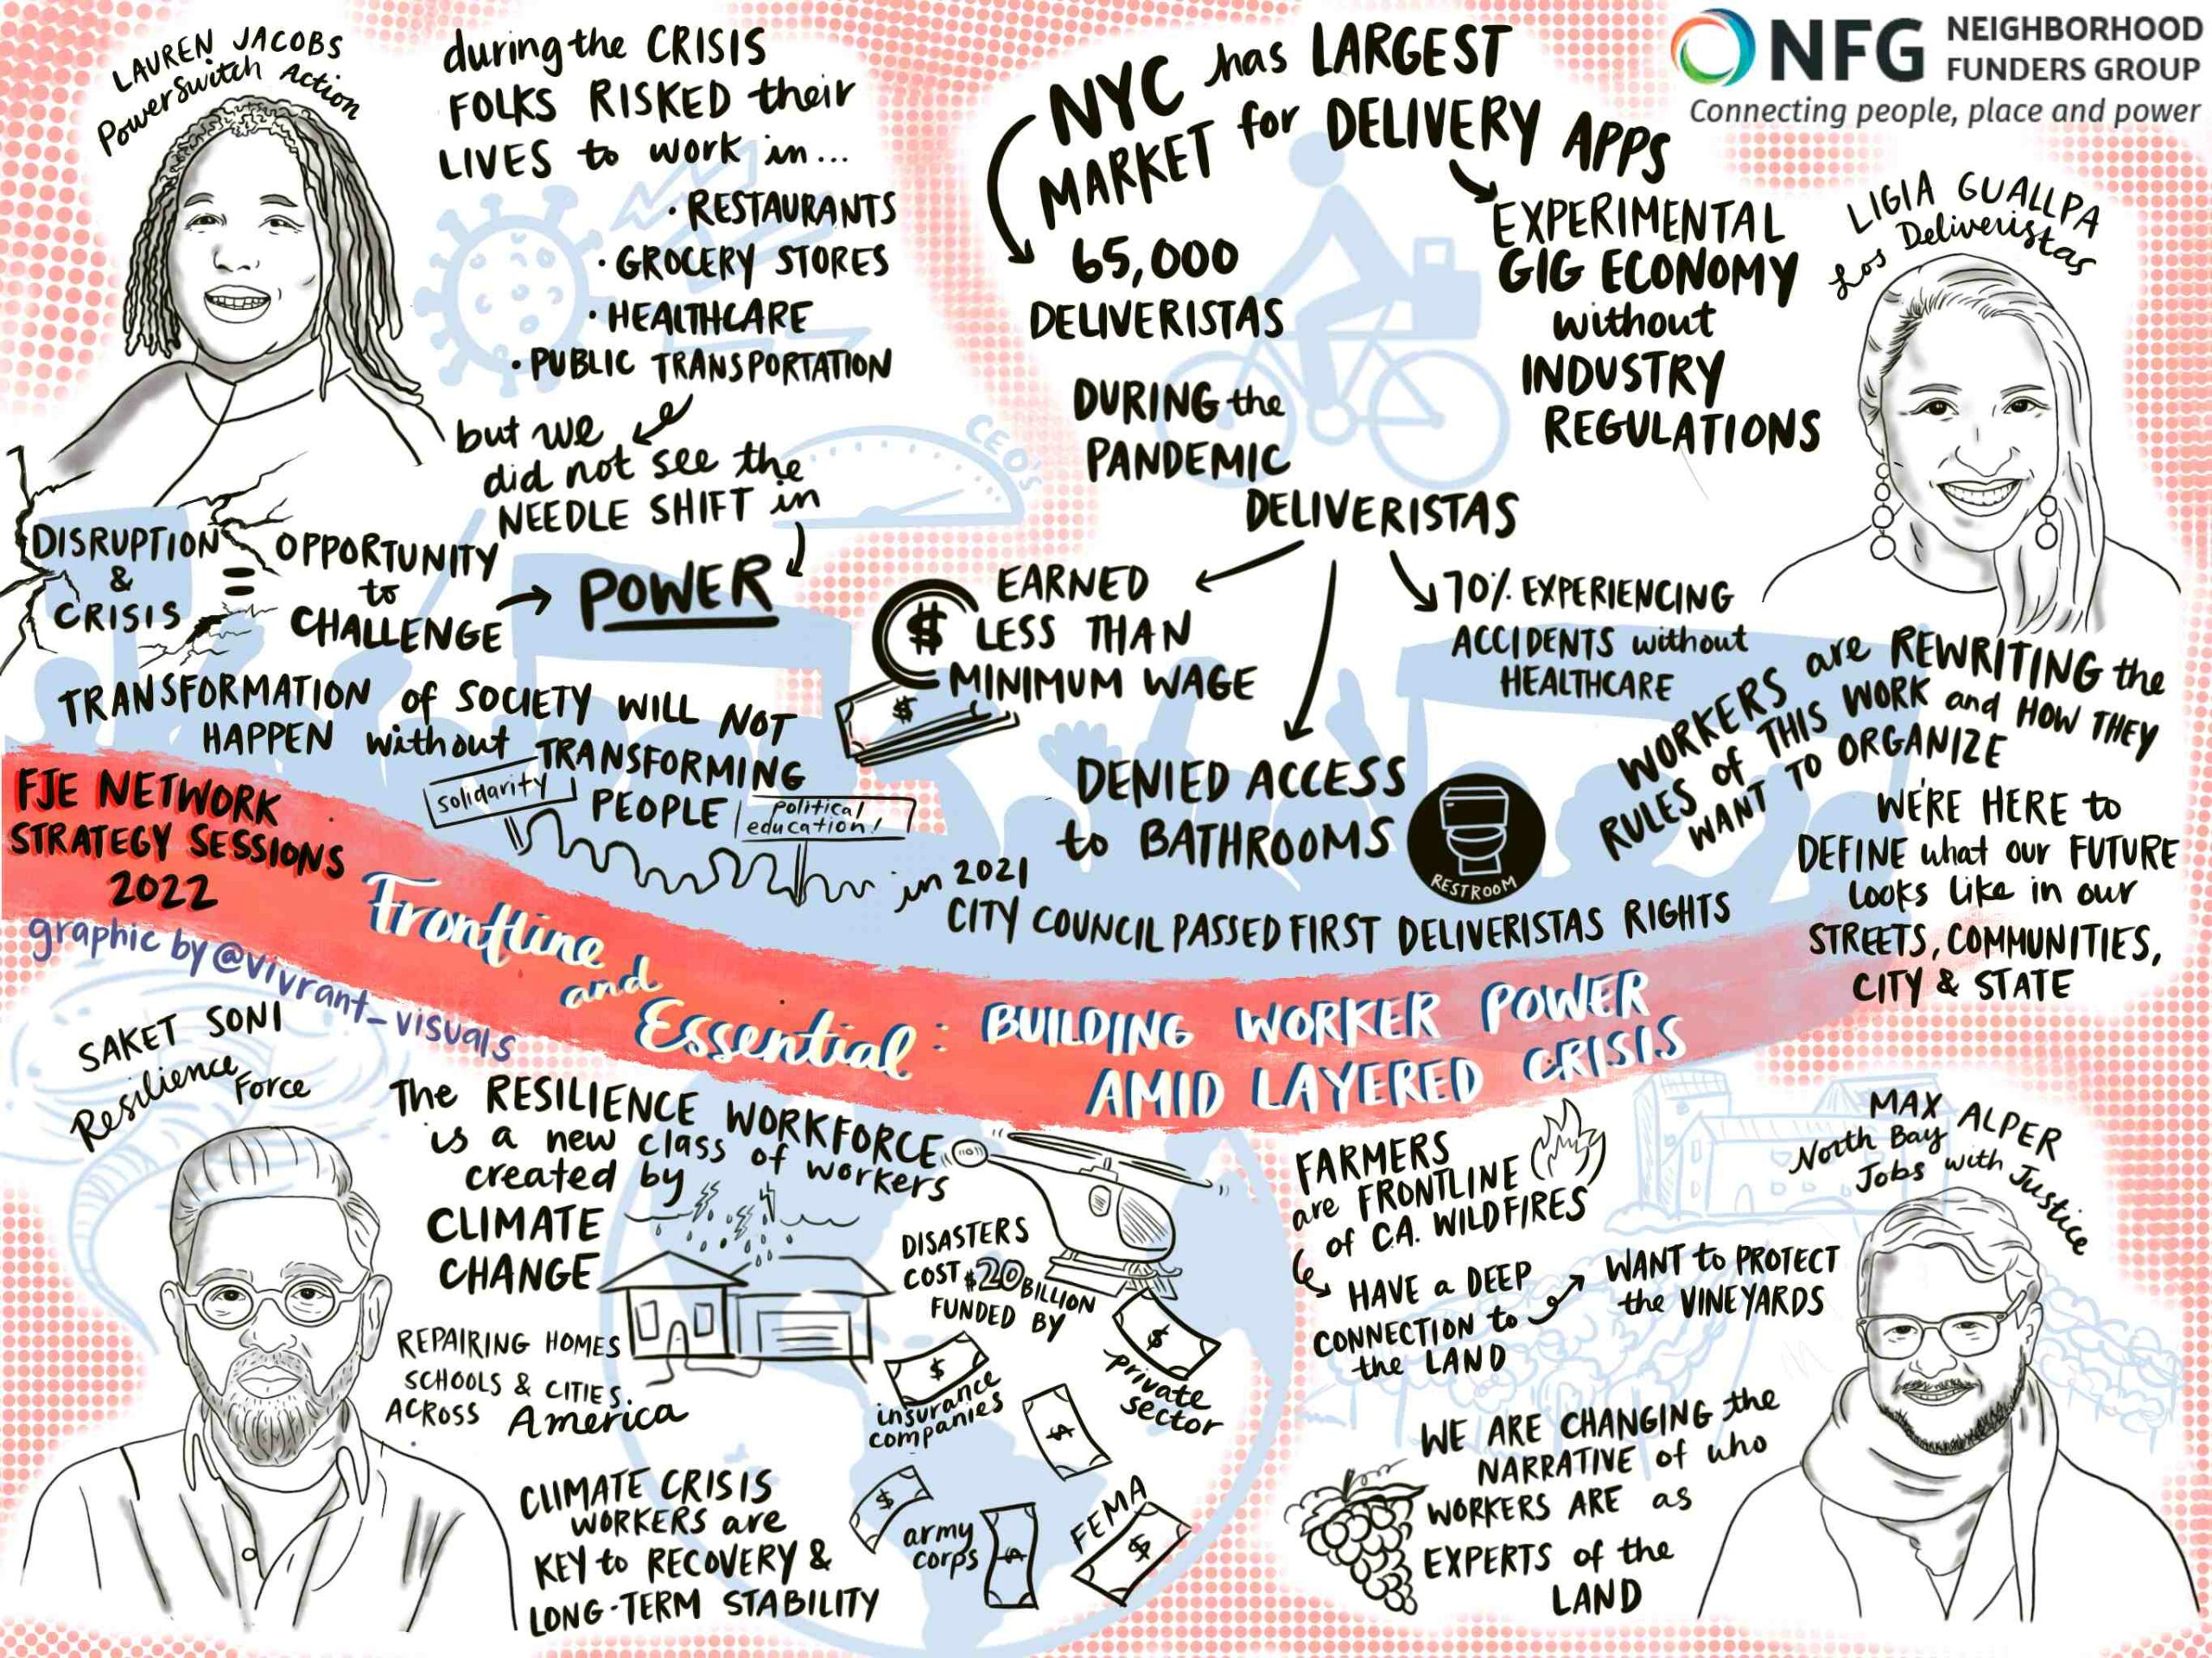 LAUREN JACOBS
PowerSwitch Action
during the CRISIS
FOLKS RISKED their
LIVES to work in...
• RESTAURANTS
• GROCERY STORES
• HEALTHCARE
• PUBLIC TRANSPORTATION
but we
did not see the
NEEDLE SHIFT in
POWER
CEO'S
DISRUPTION
&
CRISIS
=
OPPORTUNITY
to
CHALLENGE
TRANSFORMATION of SOCIETY WILL NOT
HAPPEN without TRANSFORMING
PEOPLE
solidarity
political
education!
NYC has LARGEST
MARKET for DELIVERY APPS
65,000
DELIVERISTAS
EXPERIMENTAL
GIG ECONOMY
without
INDUSTRY
REGULATIONS
DURING the
PANDEMIC
DELIVERISTAS
$
$
EARNED
LESS THAN
MINIMUM WAGE
DENIED ACCESS
to BATHROOMS
RESTROOM
70% EXPERIENCING
ACCIDENTS without
HEALTHCARE
in 2021
CITY COUNCIL PASSED FIRST DELIVERISTAS RIGHTS
NFG
NEIGHBORHOOD
FUNDERS GROUP
Connecting people, place and power
LIGIA GUALLPA
Los Deliveristas
WORKERS are REWRITING the
RULES of THIS WORK and HOW THEY
WANT TO ORGANIZE
WE'RE HERE to
DEFINE what our FUTURE
Looks like in our
STREETS, COMMUNITIES,
CITY & STATE
FJE NETWORK
STRATEGY SESSIONS
2022
graphic by @vivrant_visuals
Frontline
and
Essential: BUILDING WORKER POWER
AMID LAYERED CRISIS
SAKET SONI
Resilience
Force
The RESILIENCE WORKFORCE
is a new class of workers
created by
CLIMATE
CHANGE
REPAIRING HOMES
SCHOOLS & CITIES
ACROSS America
CLIMATE CRISIS
WORKERS are
KEY to RECOVERY &
LONG-TERM STABILITY
DISASTERS
COST $20 BILLION
FUNDED BY
$
private
sector
$
insurance
companies
$
$
army
corps
$
FEMA
$
FARMERS
are FRONTLINE
of C.A. WILDFIRES
HAVE a DEEP
CONNECTION to
the LAND
WANT to PROTECT
the VINEYARDS
WE ARE CHANGING the
NARRATIVE of who
WORKERS ARE as
EXPERTS of the
LAND
MAX ALPER
North Bay
Jobs with Justice